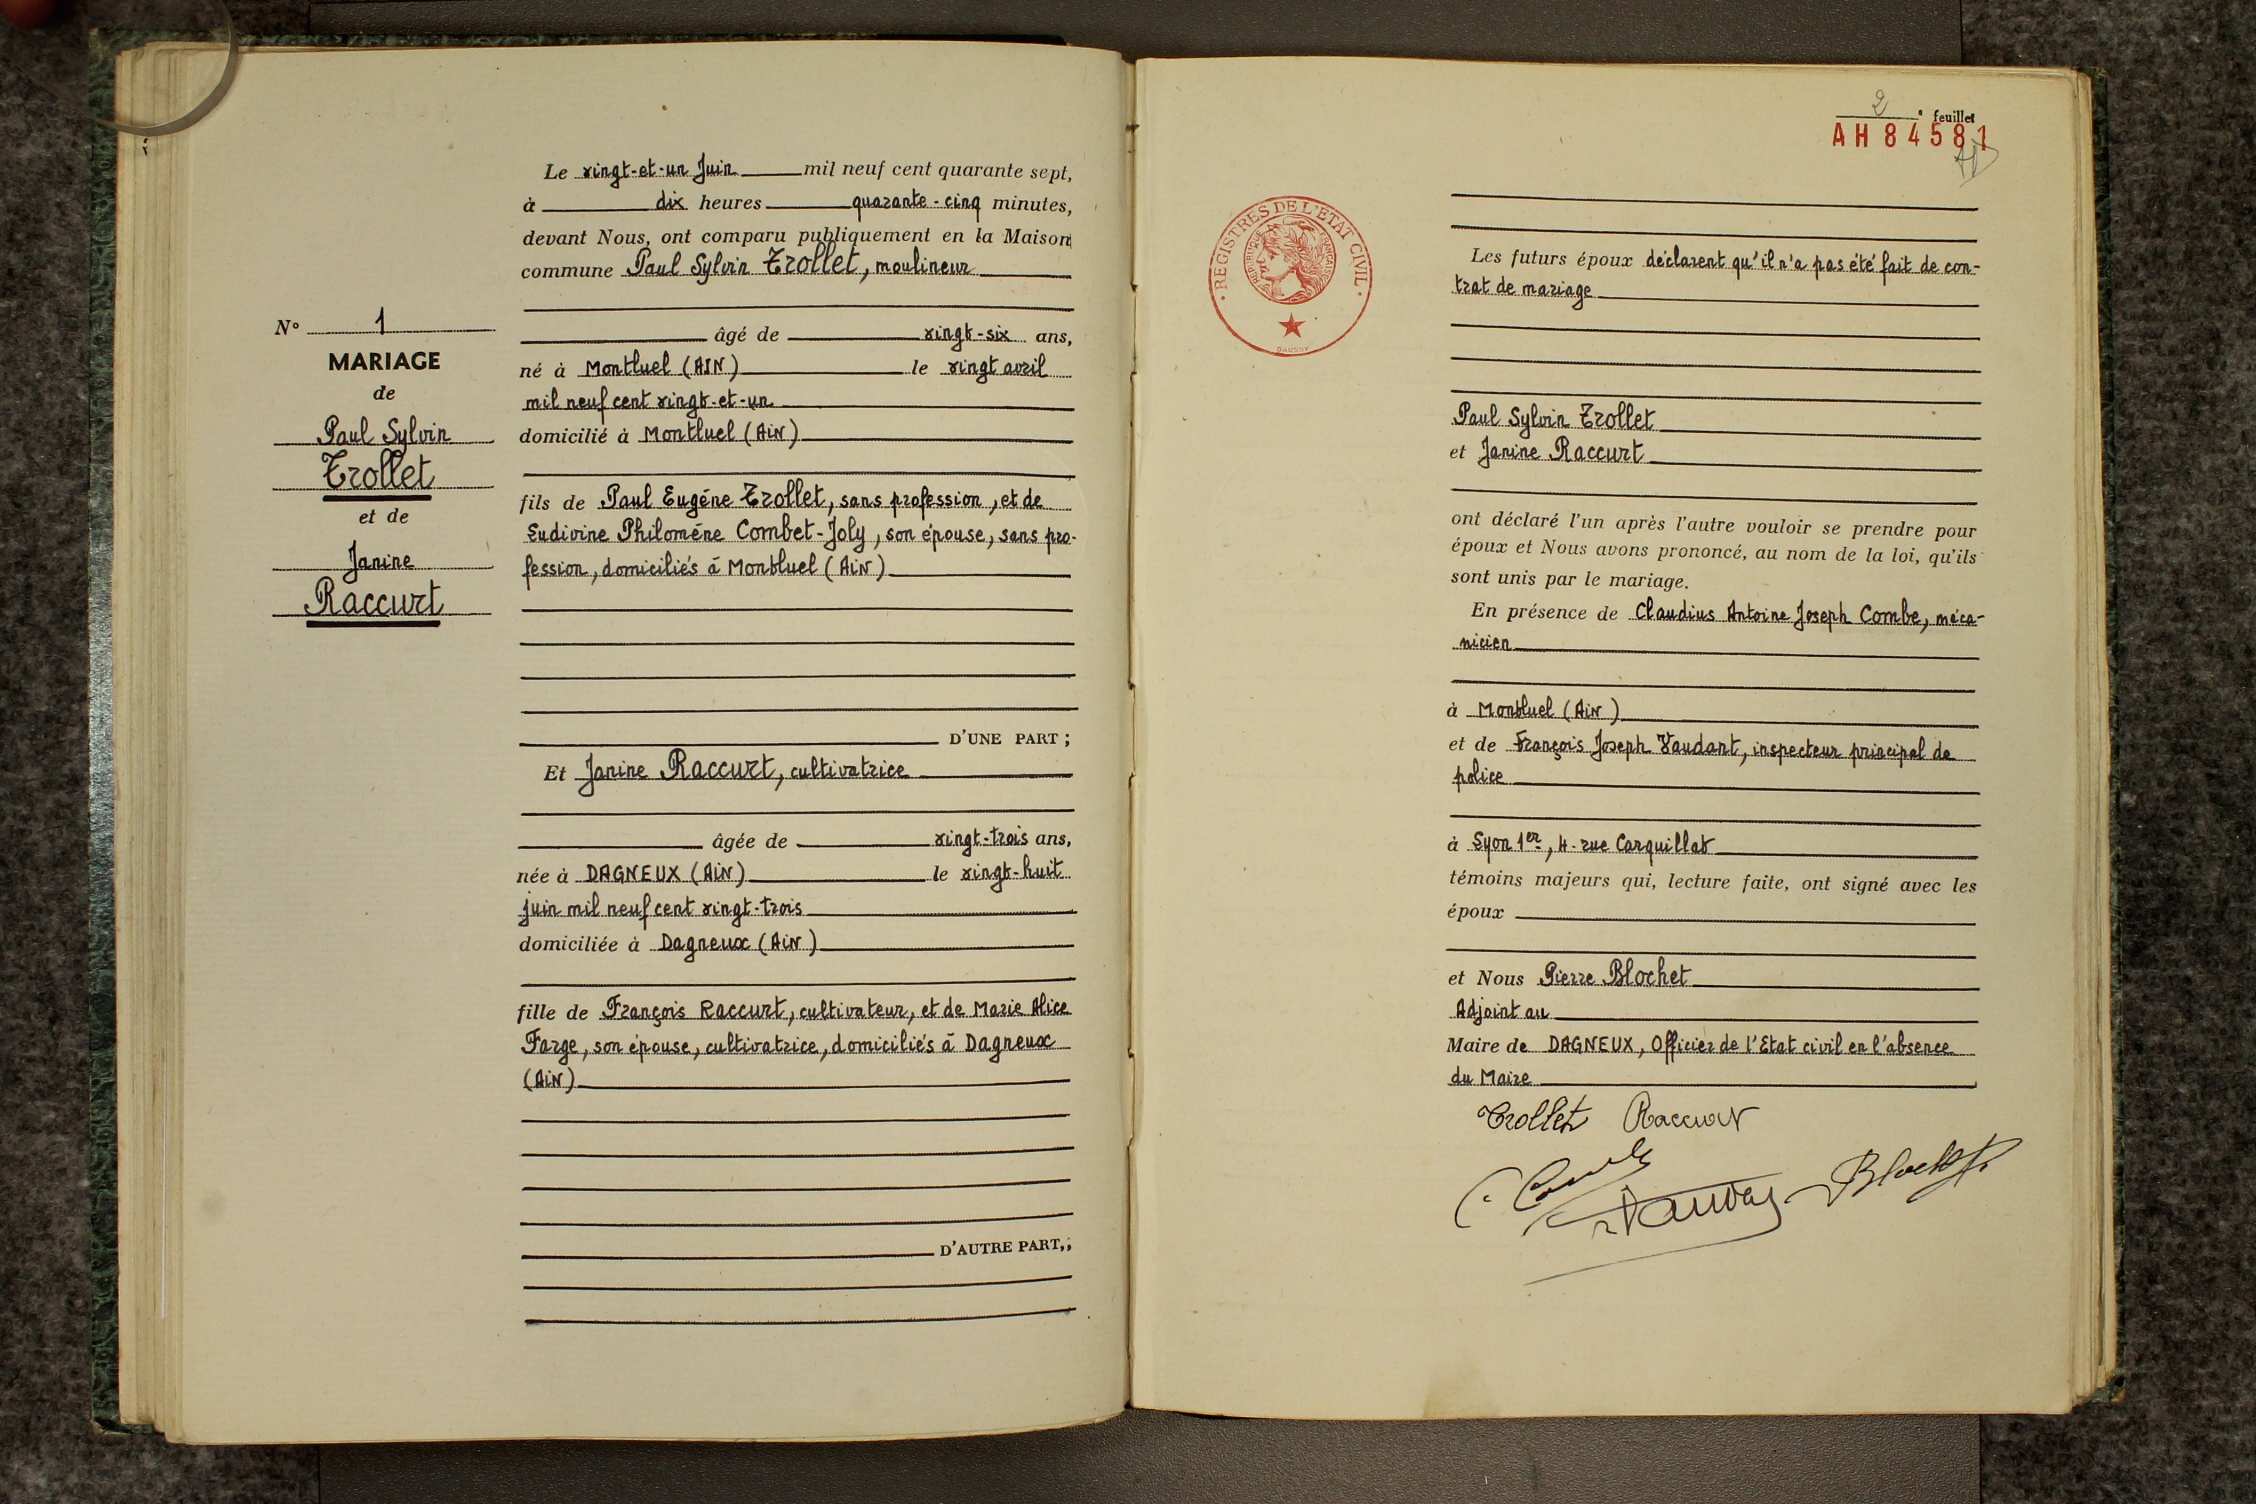 N° 1
MARIAGE
de
Paul Sylvin
Trollet
et de
Janine
Raccurt
Le vingt-et-un Juin mil neuf cent quarante sept,
à dix heures quarante-cinq minutes,
devant Nous, ont comparu publiquement en la Maison
commune Paul Sylvin Trollet, moulineur
âgé de vingt-six ans,
né à Montluel (AIN) le vingt avril
mil neuf cent vingt-et-un
domicilié à Montluel (AiN)
fils de Paul Eugène Trollet, sans profession, et de
Eudivine Philomène Combet-Joly, son épouse, sans pro-
fession, domiciliés à Montluel (AiN)
D'UNE PART ;
Et Janine Raccurt, cultivatrice
âgée de vingt-trois ans,
née à DAGNEUX (AiN) le vingt-huit
juin mil neuf cent vingt-trois
domiciliée à Dagneux (AiN)
fille de François Raccurt, cultivateur, et de Marie Alice
Farge, son épouse, cultivatrice, domiciliés à Dagneux
(AiN)
D'AUTRE PART,;
2 e feuillet
AH 84581
REGISTRES DE L'ETAT CIVIL
REPUBLIQUE FRANÇAISE
DAUSSY
Les futurs époux déclarent qu'il n'a pas été fait de con-
trat de mariage
Paul Sylvin Trollet
et Janine Raccurt
ont déclaré l'un après l'autre vouloir se prendre pour
époux et Nous avons prononcé, au nom de la loi, qu'ils
sont unis par le mariage.
En présence de Claudius Antoine Joseph Combe, méca-
nicien
à Montluel (AiN)
et de François Joseph Vaudant, inspecteur principal de
police
à Lyon 1er, 4 - rue Carquillat
témoins majeurs qui, lecture faite, ont signé avec les
époux
et Nous Pierre Blochet
Adjoint au
Maire de DAGNEUX, Officier de l'Etat civil en l'absence
du Maire
Trollet Raccurt
Blochet